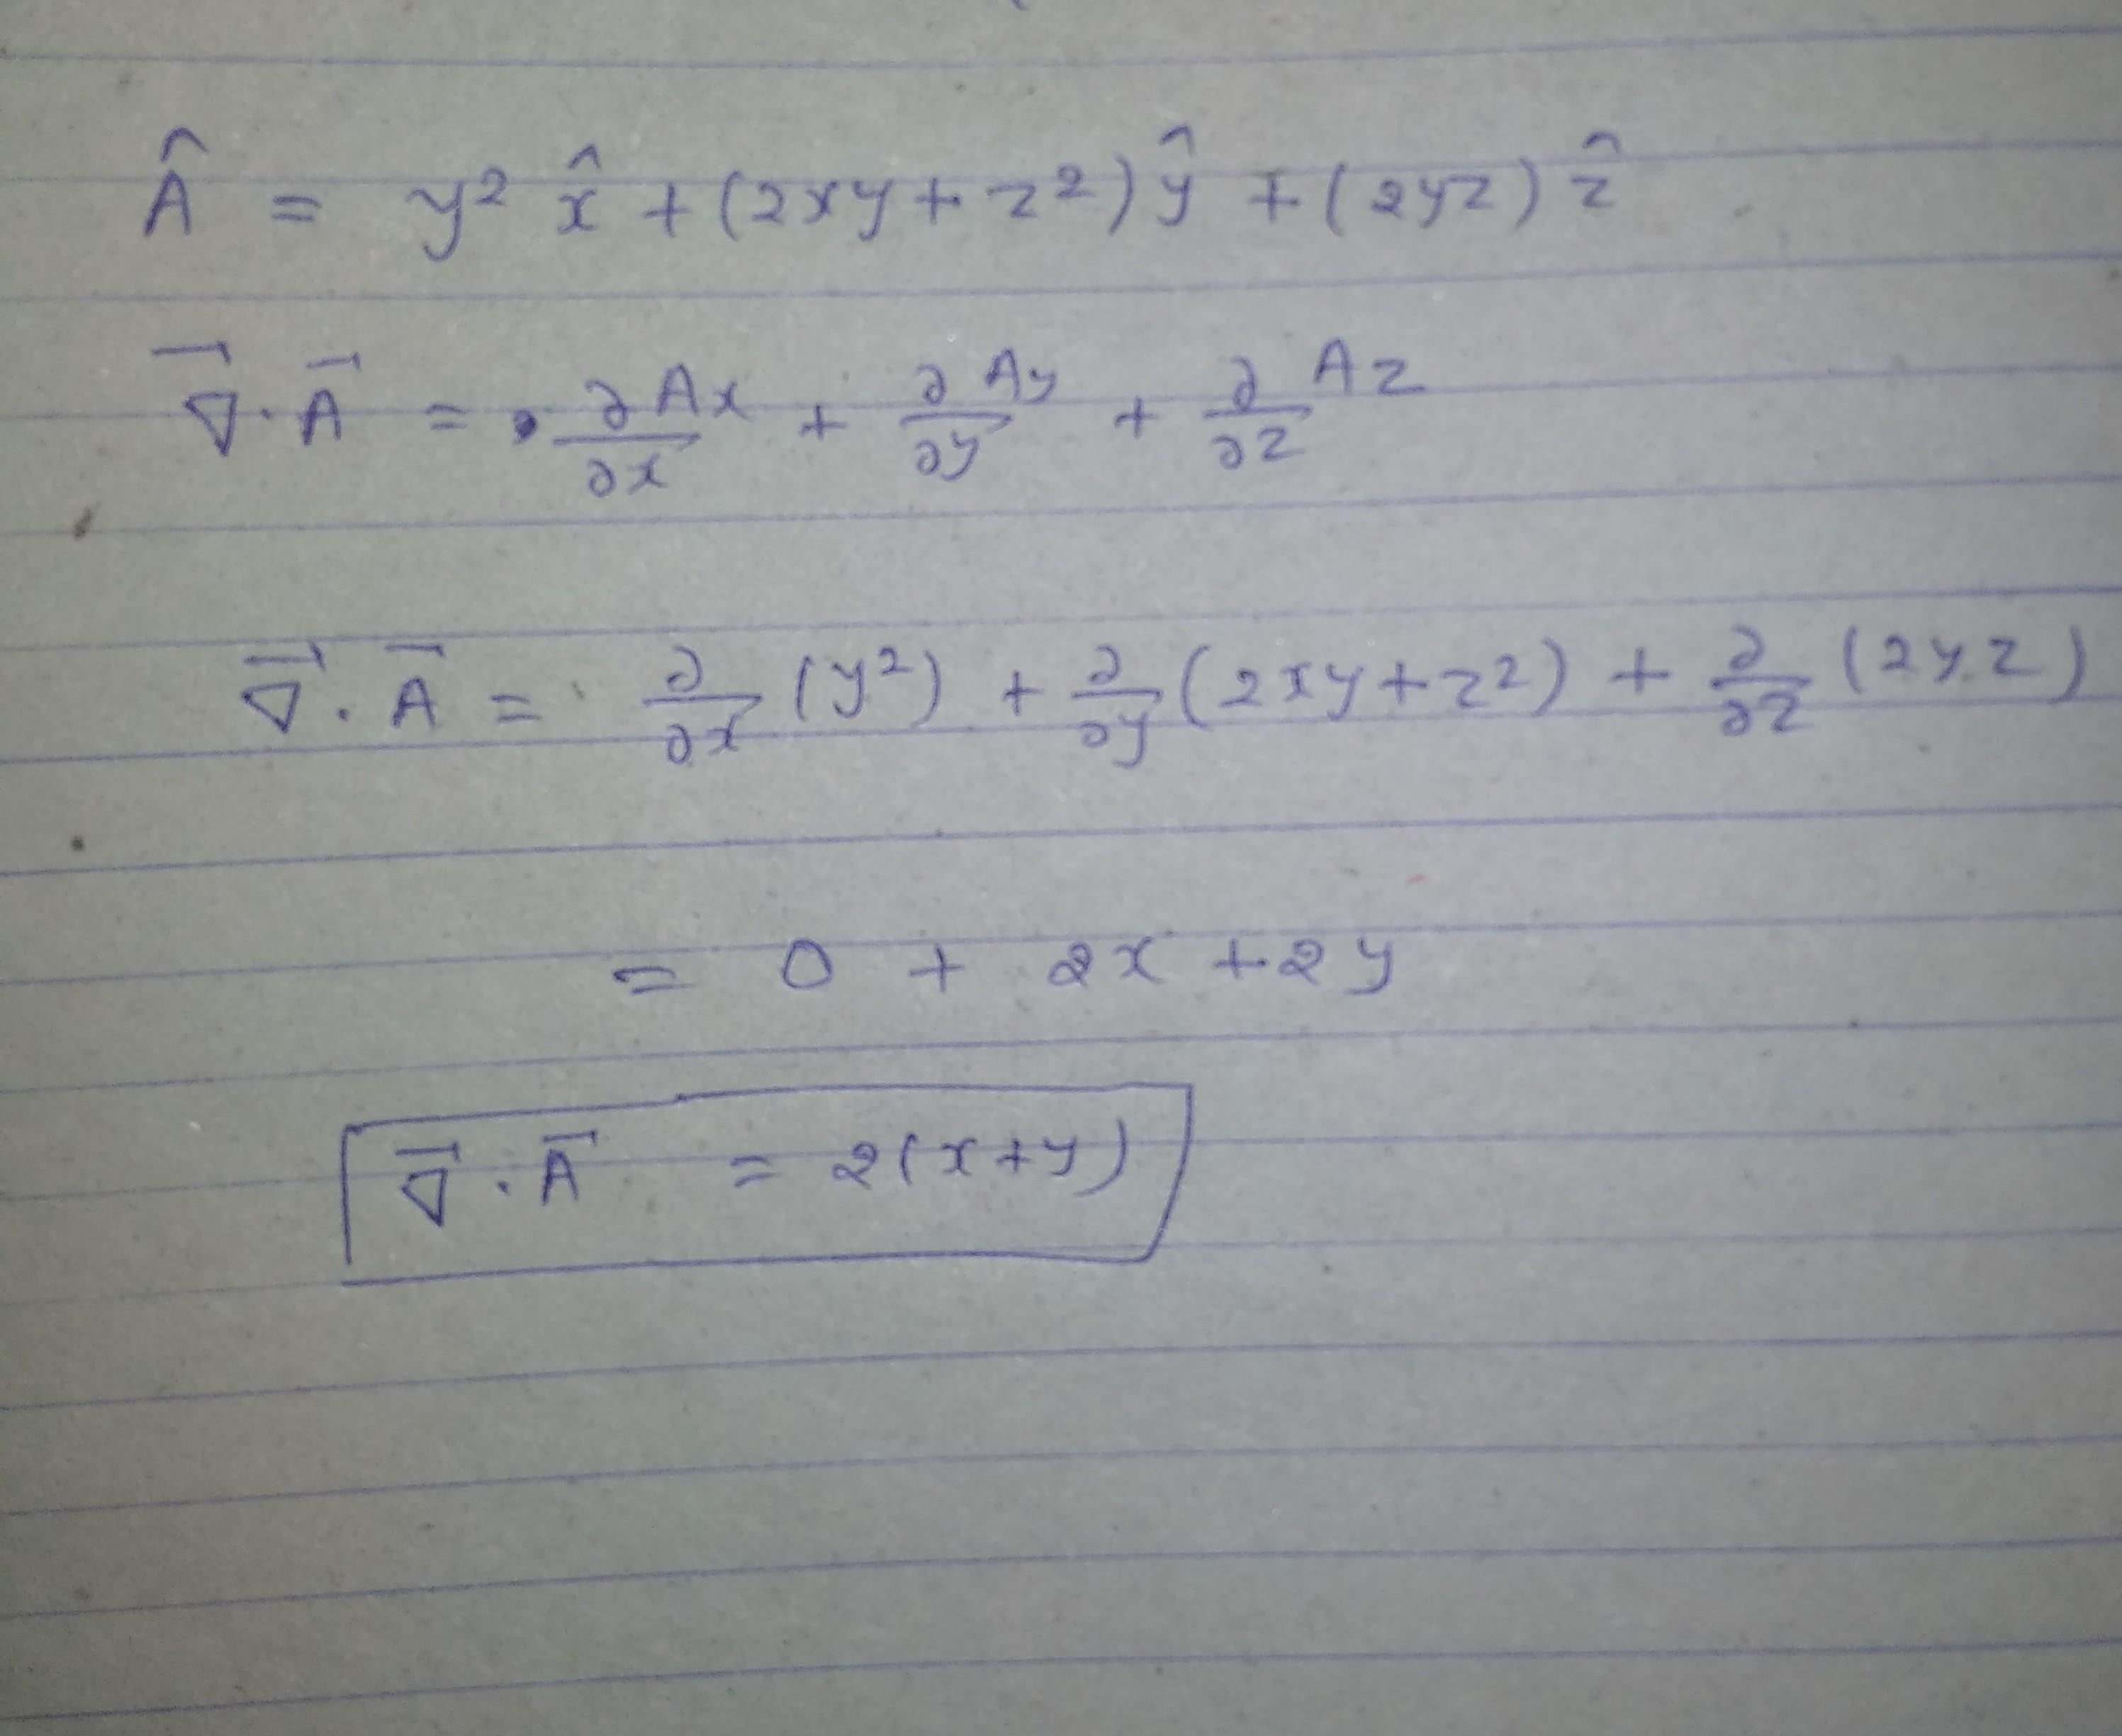 Â = y² x̂ + (2xy + z²) ŷ + (2yz) ẑ
∇⃗ · A⃗ = ∂Ax/∂x + ∂Ay/∂y + ∂Az/∂z
∇⃗ · A⃗ = ∂/∂x (y²) + ∂/∂y (2xy + z²) + ∂/∂z (2yz)
= 0 + 2x + 2y
∇⃗ · A⃗ = 2(x+y)